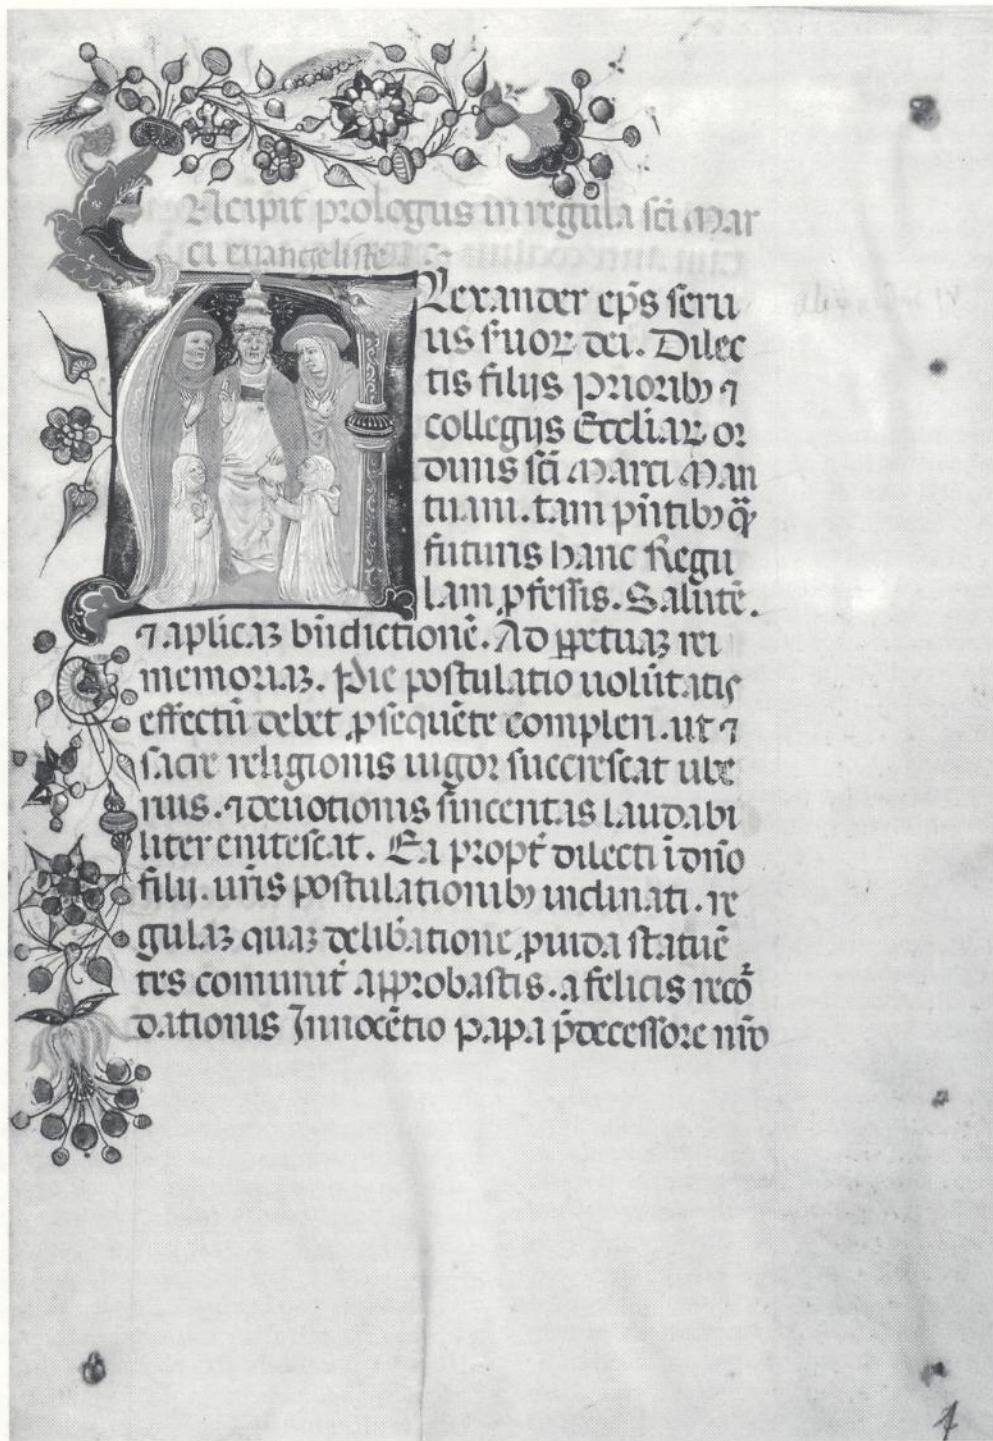 Incipit prologus in regula sc̄i Mar
ci euangeliste
Alexander ep̄s seru
us s̄uoꝝ dei. Dilec
tis filijs Prioribꝫ ⁊
collegijs Eccl̄iaꝝ or
dinis sc̄i Marci Man
tuani. tam pn̄tibꝫ qꝫ̄
futuris hanc Regu
lam ꝓfessis. Salutē.
⁊ aplicaꝫ bn̄dictionē. Ad ꝑpetuaꝫ rei
memoriaꝫ. Pie postulatio uolūtatis
effectū debet ꝓsequēte compleri. ut ⁊
sacre religionis uigor succrescat ube
rius. ⁊ deuotionis sinceritas laudabi
liter enitescat. Ea propt̄ dilecti ī dn̄o
filij. ur̄is postulationibꝫ inclinati. re
gulaꝫ quaꝫ delibatione ꝓuida statuē
tes comunit̄ approbastis. a felicis recō
dationis Innocētio papa p̄decessore nr̄o
1